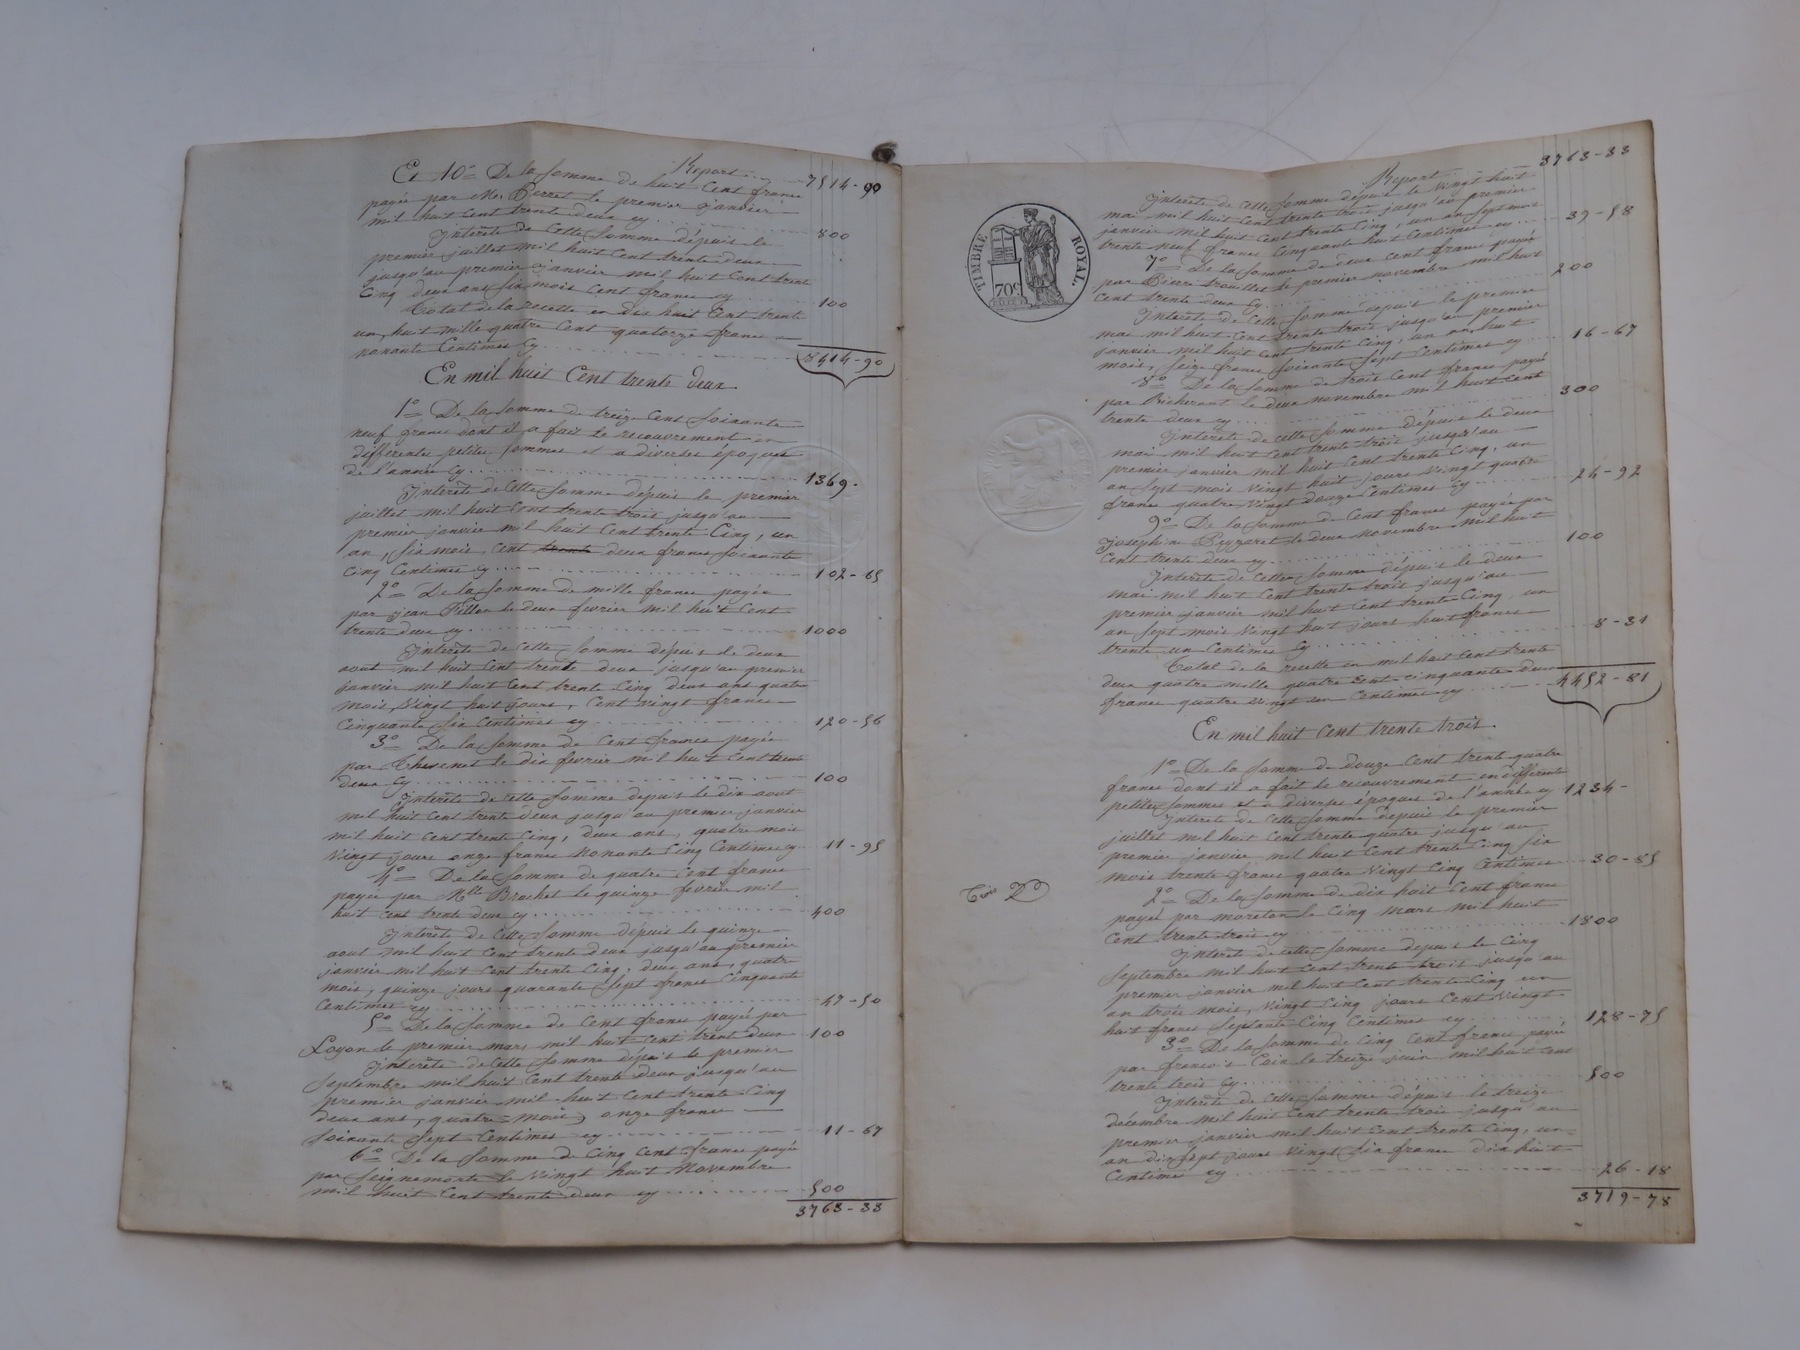 Report 7514-90
Et 10° De la somme de huit cent francs
payée par Mr Perret le premier janvier
mil huit cent trente deux cy 800
Interêts de cette somme dépuis le
premier juillet mil huit cent trente deux
jusqu'au premier janvier mil huit cent trente
cinq deux ans six mois cent francs cy 100
Total de la recette en dix huit cent trente
un, huit mille quatre cent quatorze francs
nonante centimes cy 8414-90
En mil huit cent trente deux
1° De la somme de treize cent soixante
neuf francs dont il a fait le recouvrement en
differente petites sommes et a diverses époques
de l'année cy 1369.
Interêts de cette somme dépuis le premier
juillet mil huit cent trente trois jusqu'au
premier janvier mil huit cent trente cinq, un
an, six mois, cent trente deux francs soixante
cinq centimes cy 102-65
2° De la somme de mille francs payée
par jean Tillon le deux fevrier mil huit cent
trente deux cy 1000
Interêts de cette somme dépuis le deux
aout mil huit cent trente deux jusqu'au premier
janvier mil huit cent trente cinq deux ans quatre
mois, vingt huit jours, cent vingt francs
cinquante six centimes cy 120-56
3° De la somme de cent francs payée
par Thevenet le dix fevrier mil huit cent trente
deux cy 100
Interêts de cette somme depuis le dix aout
mil huit cent trente deux jusqu'au premier janvier
mil huit cent trente cinq, deux ans, quatre mois
vingt jours onze francs nonante cinq centimes cy 11-95
4° De la somme de quatre cent francs
payée par Mlle Brochet le quinze fevrier mil
huit cent trente deux cy 400
Interêts de cette somme dépuis le quinze
aout mil huit cent trente deux jusqu'au premier
janvier mil huit cent trente cinq, deux ans, quatre
mois, quinze jours quarante sept francs cinquante
centimes cy 47-50
5° De la somme de cent francs payée par
Loyon le premier mars mil huit cent trente deux 100
Interêts de cette somme dépuis le premier
septembre mil huit cent trente deux jusqu'au
premier janvier mil huit cent trente cinq
deux ans, quatre mois, onze francs
soixante sept centimes cy 11-67
6° De la somme de cinq cent francs payée
par Seignemorte le vingt huit Novembre
mil huit cent trente deux cy 500
3763-33
TIMBRE ROYAL.
70c
Report 3763-33
Interêts de cette somme dépuis le vingt huit
mai mil huit cent trente trois jusqu'au premier
janvier mil huit cent trente cinq, un an sept mois
trente neuf francs cinquante huit centimes cy 39-58
7° De la somme de deux cent francs payée
par Pierre trouillet le premier novembre mil huit
cent trente deux cy 200
Interêts de cette somme dépuis le premier
mai mil huit cent trente trois jusqu'au premier
janvier mil huit cent trente cinq, un an, huit
mois, seize francs soixante sept centimes cy 16-67
8° De la somme de trois cent francs payée
par Bicherant le deux novembre mil huit cent
trente deux cy 300
Interêts de cette somme dépuis le deux
mai mil huit cent trente trois jusqu'au
premier janvier mil huit cent trente cinq, un
an sept mois vingt huit jours vingt quatre
francs quatre vingt douze centimes cy 24-92
9° De la somme de cent francs payée par
Joseph Peyzaret le deux novembre mil huit
cent trente deux cy 100
Interêts de cette somme dépuis le deux
mai mil huit cent trente trois jusqu'au
premier janvier mil huit cent trente cinq, un
an sept mois vingt huit jours huit francs
trente un centimes cy 8-31
Total de la recette en mil huit cent trente
deux quatre mille quatre cent cinquante deux
francs quatre vingt un centimes cy 4452-81
En mil huit cent trente trois.
1° De la somme de douze cent trente quatre
francs dont il a fait le recouvrement en differente
petites sommes et a diverses époques de l'année cy 1234-
Interêts de cette somme dépuis le premier
juillet mil huit cent trente quatre jusqu'au
premier janvier mil huit cent trente cinq six
mois trente francs quatre vingt cinq centimes 30-85
2° De la somme de dix huit cent francs
payée par moreton le cinq mars mil huit
cent trente trois cy 1800
Interêts de cette somme dépuis le cinq
septembre mil huit cent trente trois jusqu'au
premier janvier mil huit cent trente cinq un
an trois mois, vingt cinq jours cent vingt
huit francs septante cinq centimes cy 128-75
3° De la somme de cinq cent francs payée
par francois Cain le treize juin mil huit cent
trente trois cy 500
Interêts de cette somme dépuis le treize
décembre mil huit cent trente trois jusqu'au
premier janvier mil huit cent trente cinq, un
an dix sept jours vingt six francs dix huit
centimes cy 26-18
3719-78